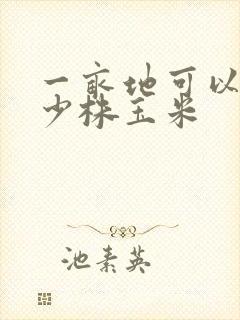 一亩地可以
少株玉米
池素英